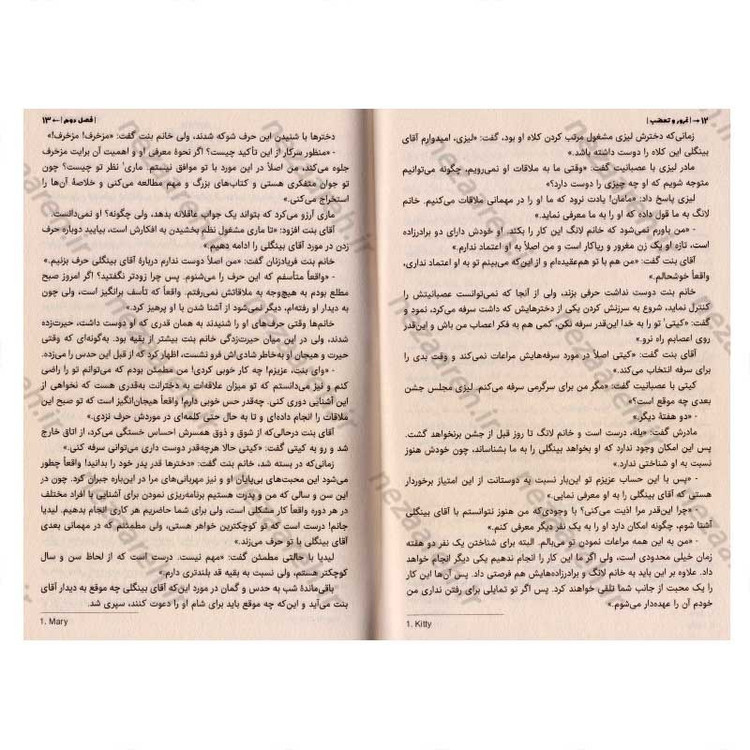 ۱۲ → | غرور و تعصب |
زمانی‌که دخترش لیزی مشغول مرتب کردن کلاه او بود، گفت: «لیزی، امیدوارم آقای
بینگلی این کلاه را دوست داشته باشد.»
مادر لیزی با عصبانیت گفت: «وقتی ما به ملاقات او نمی‌رویم، چگونه می‌توانیم
متوجه شویم که او چه چیزی را دوست دارد؟»
لیزی پاسخ داد: «مامان! یادت نرود که ما او را در مهمانی ملاقات می‌کنیم. خانم
لانگ به ما قول داده که او را به ما معرفی نماید.»
- «من باورم نمی‌شود که خانم لانگ این کار را بکند. او خودش دارای دو برادرزاده
است، تازه او یک زن مغرور و ریاکار است و من اصلاً به او اعتماد ندارم.»
آقای بنت گفت: «من هم با تو هم‌عقیده‌ام و از این‌که می‌بینم تو به او اعتماد نداری،
واقعاً خوشحالم.»
خانم بنت دوست نداشت حرفی بزند، ولی از آنجا که نمی‌توانست عصبانیتش را
کنترل نماید، شروع به سرزنش کردن یکی از دخترهایش که داشت سرفه می‌کرد، نمود و
گفت: «کیتی¹ تو را به خدا این‌قدر سرفه نکن، کمی هم به فکر اعصاب من باش و این‌قدر
روی اعصابم راه نرو.»
آقای بنت گفت: «کیتی اصلاً در مورد سرفه‌هایش مراعات نمی‌کند و وقت بدی را
برای سرفه انتخاب می‌کند.»
کیتی با عصبانیت گفت: «مگر من برای سرگرمی سرفه می‌کنم. لیزی مجلس جشن
بعدی چه موقع است؟»
- «دو هفتهٔ دیگر.»
مادرش گفت: «بله، درست است و خانم لانگ تا روز قبل از جشن برنخواهد گشت.
پس این امکان وجود ندارد که او بخواهد بینگلی را به ما بشناساند، چون خودش هنوز
نسبت به او شناختی ندارد.»
- «پس با این حساب عزیزم تو این‌بار نسبت به دوستانت از این امتیاز برخوردار
هستی که آقای بینگلی را به او معرفی نمایی.»
- «چرا این‌قدر مرا اذیت می‌کنی؟ با وجودی‌که من هنوز نتوانستم با آقای بینگلی
آشنا شوم، چگونه امکان دارد او را به یک نفر دیگر معرفی کنم.»
- «من به این همه مراعات نمودن تو می‌بالم. البته برای شناختن یک نفر دو هفته
زمان خیلی محدودی است، ولی اگر ما این کار را انجام ندهیم یکی دیگر انجام خواهد
داد. علاوه بر این باید به خانم لانگ و برادرزاده‌هایش هم فرصتی داد. پس آن‌ها این کار
را یک محبت از جانب شما تلقی خواهند کرد. پس اگر تو تمایلی برای رفتن نداری من
خودم آن را عهده‌دار می‌شوم.»
1. Kitty
| فصل دوم | ← ۱۳
دخترها با شنیدن این حرف شوکه شدند، ولی خانم بنت گفت: «مزخرف! مزخرف!»
- «منظور سرکار از این تأکید چیست؟ اگر نحوهٔ معرفی او و اهمیت آن برایت مزخرف
جلوه می‌کند، من اصلاً در این مورد با تو موافق نیستم. ماری¹ نظر تو چیست؟ چون
تو جوان متفکری هستی و کتاب‌های بزرگ و مهم مطالعه می‌کنی و خلاصهٔ آن‌ها را
استخراج می‌کنی.»
ماری آرزو می‌کرد که بتواند یک جواب عاقلانه بدهد، ولی چگونه؟ او نمی‌دانست.
آقای بنت افزود: «تا ماری مشغول نظم بخشیدن به افکارش است، بیایید دوباره حرف
زدن در مورد آقای بینگلی را ادامه دهیم.»
خانم بنت فریادزنان گفت: «من اصلاً دوست ندارم دربارهٔ آقای بینگلی حرف بزنیم.»
- «واقعاً متأسفم که این حرف را می‌شنوم. پس چرا زودتر نگفتید؟ اگر امروز صبح
مطلع بودم به هیچ‌وجه به ملاقاتش نمی‌رفتم. واقعاً که تأسف برانگیز است، ولی چون
به دیدار او رفته‌ام، دیگر نمی‌شود از آشنا شدن با او پرهیز کرد.»
خانم‌ها وقتی حرف‌های او را شنیدند به همان قدری که او دوست داشت، حیرت‌زده
شدند، ولی در این میان حیرت‌زدگی خانم بنت بیشتر از بقیه بود. به‌گونه‌ای که وقتی
حیرت و هیجان او به‌خاطر شادی‌اش فرو نشست، اظهار کرد که از قبل این حدس را می‌زده.
- «وای بنت، عزیزم! چه کار خوبی کردی! من مطمئن بودم که می‌توانم تو را راضی
کنم و نیز می‌دانستم که تو میزان علاقه‌ات به دخترانت به‌قدری هست که نخواهی از
این آشنایی دوری کنی. چه‌قدر حس خوبی دارم! واقعاً هیجان‌انگیز است که تو صبح این
ملاقات را انجام داده‌ای و تا به حال حتی کلمه‌ای در موردش حرف نزدی.»
آقای بنت درحالی‌که از شوق و ذوق همسرش احساس خستگی می‌کرد، از اتاق خارج
شد و رو به کیتی گفت: «کیتی حالا هرچه‌قدر دوست داری می‌توانی سرفه کنی.»
زمانی‌که در بسته شد، خانم بنت گفت: «دخترها قدر پدر خود را بدانید! واقعاً چطور
می‌شود این محبت‌های بی‌پایان او و نیز مهربانی‌های مرا در این‌باره جبران کرد. چون در
این سن و سالی که من و پدرت هستیم برنامه‌ریزی نمودن برای آشنایی با افراد مختلف
در هر دوره واقعاً کار مشکلی است، ولی برای شما حاضریم هر کاری انجام بدهیم. لیدیا
جانم! درست است که تو کوچکترین خواهر هستی، ولی مطمئنم که در مهمانی بعدی
آقای بینگلی با تو حرف می‌زند.»
لیدیا با حالتی مطمئن گفت: «مهم نیست. درست است که از لحاظ سن و سال
کوچکتر هستم، ولی نسبت به بقیه قد بلندتری دارم.»
باقی‌ماندهٔ شب به حدس و گمان در مورد این‌که آقای بینگلی چه موقع به دیدار آقای
بنت می‌آید و این‌که چه موقع باید برای شام او را دعوت کنند، سپری شد.
1. Mary
nezaareh.ir